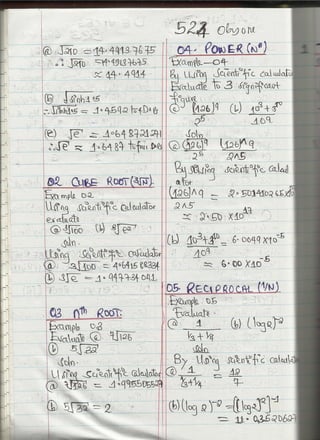 524 Obyom
@ √210 = 14.4913 7675
∴ √210 = 14.4913 7675
≈ 14.4914
(b) √sinh1.5
∴ √sinh1.5 = 1.4592 to 4 D.P
(c) √e = 1.648721271
∴ √e = 1.6487 to four D.P
02 CUBE ROOT (3√N).
Example 02
Using scientific calculator
evaluate
@ 3√100 (b) 3√e
soln.
Using scientific calculator
@ 3√100 = 4.641588834
(b)
03 nth ROOT:
Example 03
Evaluate @ 7√126
(b) 5√32
soln.
Using scientific calculator
@ 7√126 = 1.995505527
(b) 5√32 = 2
04. POWER (Nª)
Example - 04
By Using scientific calculator
Evaluate to 3 significant
figure
@ (126)9 (b) 10³+3¹⁰
2⁵ 10⁹
soln
@ (126)9 (126)^9
2⁵ 2^5
By Using scientific calcul
ator
(126)^9 = 2.501410265x10
2^5
≈ 2.50 x10¹⁷
(b) 10³+3¹⁰ = 6.0049x10⁻⁵
10⁹
≈ 6.00 x10⁻⁵
05 RECIPROCAL (1/N).
Example 05
Evaluate.
@ 1 (b) (log2)⁻²
1/3 + 1/4
soln
By Using scientific calculat
@ 1 = 12
1/3+1/4 7
(b) (log 2)⁻² = ([log2]²)⁻¹
= 11.03520627